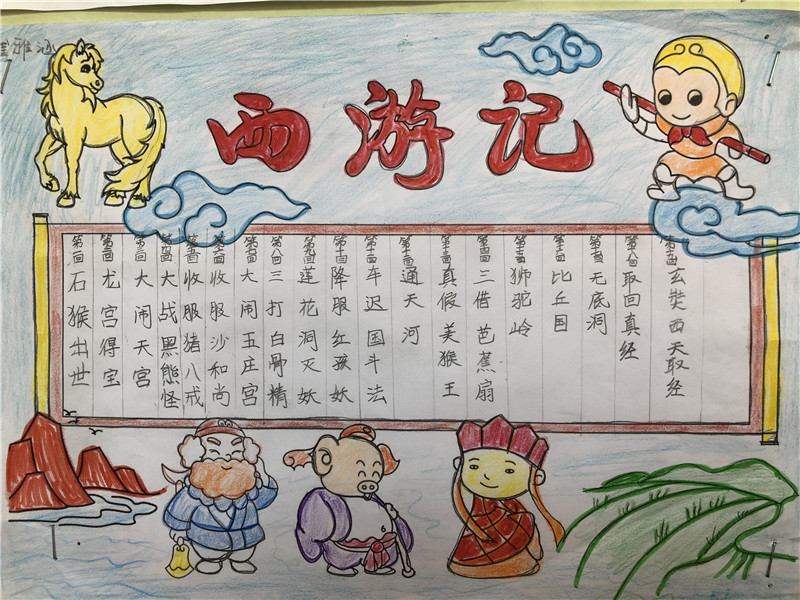 雅涵
西游记
第一回 石猴出世
第二回 龙宫得宝
第三回 大闹天宫
第四回 大战黑熊怪
第五回 收服猪八戒
第六回 收服沙和尚
第七回 大闹五庄宫
第八回 三打白骨精
第九回 莲花洞灭妖
第十回 降服红孩妖
第十一回 车迟国斗法
第十二回 通天河
第十三回 真假美猴王
第十四回 三借芭蕉扇
第十五回 狮驼岭
第十六回 比丘国
第十七回 无底洞
第十八回 取回真经
玄奘西天取经